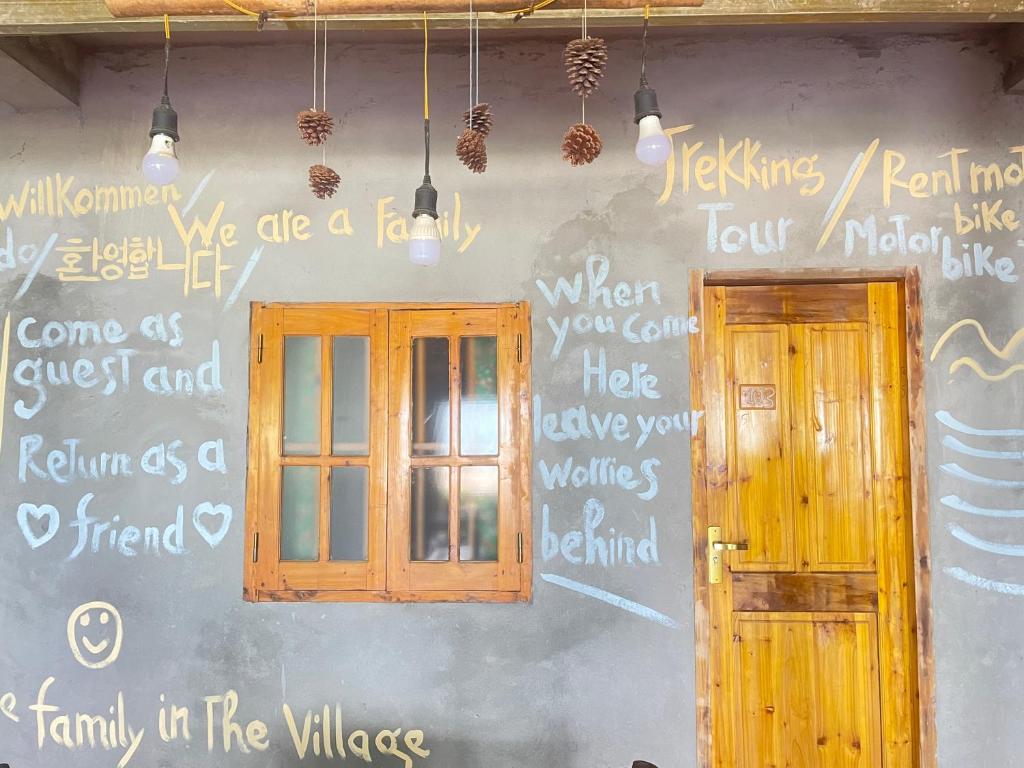 Willkommen /
do / 화영합니다 /
We are a Family
Trekking / Rent mot
Tour / Motor bike
bike
come as
guest and
Return as a
friend
When
you come
Here
leave your
Worries
behind
e family in The Village